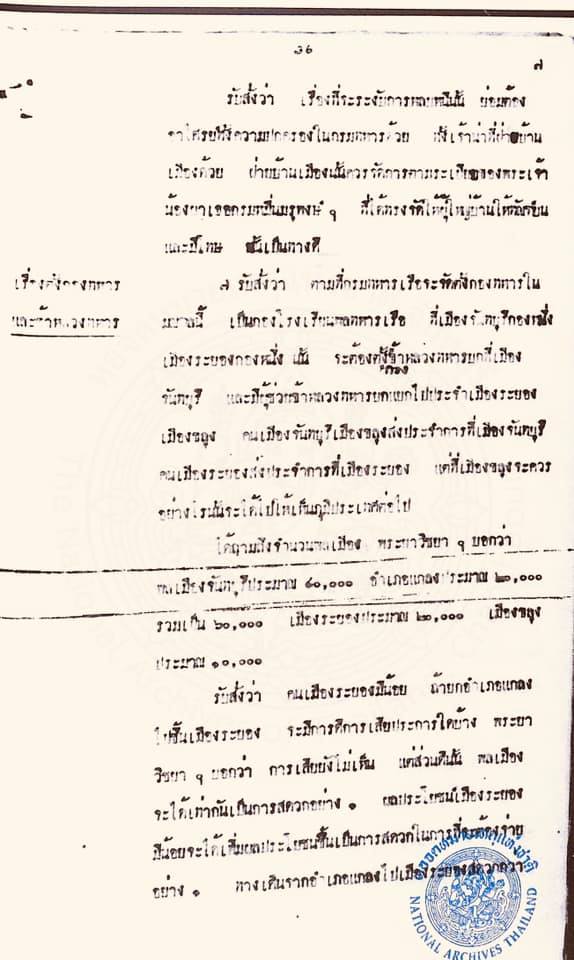 ๓๖
๗
รับสั่งว่า เรื่องที่จะระงับการหลบหนีนั้น ย่อมต้อง
อาไศรยทั้งความปกครองในกรมทหารด้วย ทั้งเจ้าน่าที่ฝ่ายบ้าน
เมืองด้วย ฝ่ายบ้านเมืองนั้นควรจัดการตามระเบียบของพระเจ้า
น้องยาเธอกรมหมื่นมรุพงษ์ ฯ ที่ได้ทรงจัดให้ผู้ใหญ่บ้านให้
และมีโทษ นั้นเป็นทางดี
เรื่องตั้งกองทหาร
และข้าหลวงทหาร
๗ รับสั่งว่า ตามที่กรมทหารเรือจะจัดตั้งกองทหารใน
มณฑลนี้ เป็นกองโรงเรียนพลทหารเรือ ที่เมืองจันทบุรีกองหนึ่ง
เมืองระยองกองหนึ่ง นั้น จะต้องตั้งข้าหลวงทหารบกที่เมือง
จันทบุรี และมีผู้ช่วยข้าหลวงทหารบกแยกไปประจำเมืองระยอง
เมืองขลุง คนเมืองจันทบุรีเมืองขลุงส่งประจำการที่เมืองจันทบุรี
คนเมืองระยองส่งประจำการที่เมืองระยอง แต่ที่เมืองขลุงจะควร
อย่างไรนั้นจะได้ไปให้เห็นภูมิประเทศต่อไป
ได้ถามถึงจำนวนพลเมือง พระยาวิชยา ฯ บอกว่า
พลเมืองจันทบุรีประมาณ ๔๐,๐๐๐ อำเภอแกลงประมาณ ๒๐,๐๐๐
รวมเป็น ๖๐,๐๐๐ เมืองระยองประมาณ ๒๐,๐๐๐ เมืองขลุง
ประมาณ ๑๐,๐๐๐
รับสั่งว่า คนเมืองระยองมีน้อย ถ้ายกอำเภอแกลง
ไปขึ้นเมืองระยอง จะมีการดีการเสียประการใดบ้าง พระยา
วิชยา ฯ บอกว่า การเสียยังไม่เห็น แต่ส่วนดีนั้น พลเมือง
จะได้เท่ากันเป็นการสดวกอย่าง ๑ ผลประโยชน์เมืองระยอง
มีน้อยจะได้เพิ่มผลประโยชน์ขึ้นเป็นการสดวกในการที่จะต้องจ่าย
อย่าง ๑ ทางเดินจากอำเภอแกลงไปเมืองระยองสดวกกว่า
หอจดหมายเหตุแห่งชาติ
NATIONAL ARCHIVES THAILAND